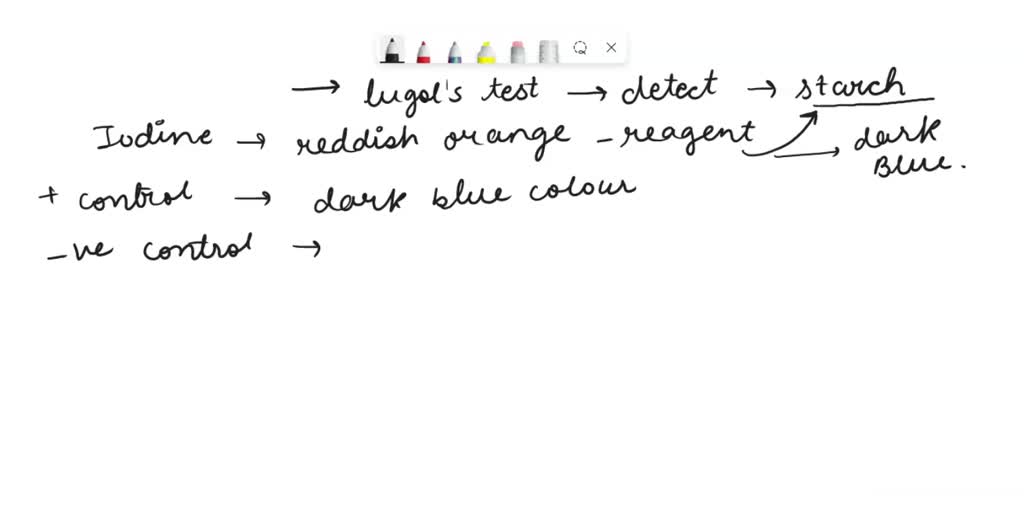 → lugol's test → detect → starch
Iodine → reddish orange - reagent → dark Blue.
+ control → dark blue colour
-ve control →